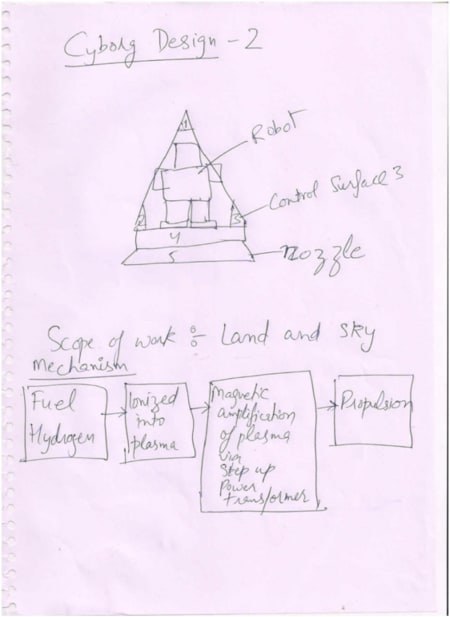 Cyborg Design - 2
1
Robot
Control Surface 3
2
3
4
5
nozzle
Scope of work : Land and sky
Mechanism
Fuel
Hydrogen
Ionized
into
plasma
Magnetic
amplification
of plasma
via
Step up
Power
transformer
Propulsion